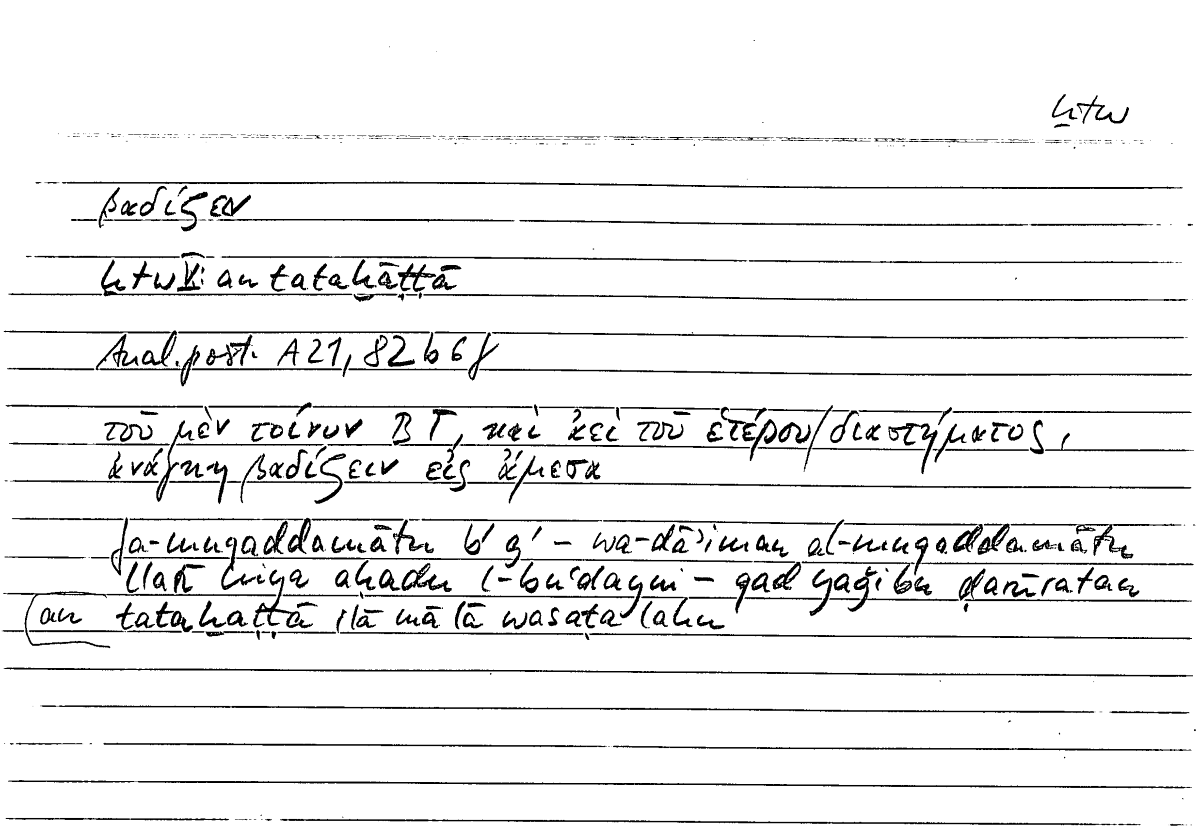 ḫṭw
βαδίζειν
ḫṭw V: an tataḫāṭṭā
Anal. post. A 21, 82 b 6 f
τοῦ μὲν τοίνυν Β Γ, καὶ ἀεὶ τοῦ ἑτέρου διαστήματος,
ἀνάγκη βαδίζειν εἰς ἄμεσα
fa-muqaddamātu b' g' – wa-dāʾiman al-muqaddamātu
llatī hiya aḥadu l-buʿdayni – qad yaǧibu ḍarūratan
an tataḫaṭṭā ilā mā lā wasaṭa lahu